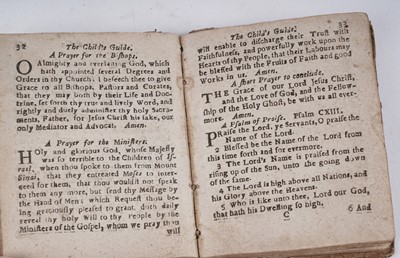 32 The Child's Guide.
A Prayer for the Bishops.
O Almighty and everlasting God, which
hath appointed several Degrees and
Orders in thy Church: I beseech thee to give
Grace to all Bishops, Pastors and Curates,
that they may both by their Life and Doc-
trine, set forth thy true and lively Word, and
rightly and duely administer thy holy Sacra-
ments, Father, for Jesus Christ his sake, our
only Mediator and Advocat. Amen.
A Prayer for the Ministers.
HOly and glorious God, whose Majesty
was so terrible to the Children of Is-
rael, when thou spoke to them from Mount
Sinai, that they entreated Moses to inter-
ceed for them, that thou wouldst not speak
to them any more, but send thy Message by
the Hand of Men: which Request thou be-
ing graciously pleased to grant, doth daily
reveal thy holy Will to thy People by the
Ministers of the Gospel, whom we pray thou
will
The Child's Guide. 33
will enable to discharge their Trust with
Faithfulness, and powerfully work upon the
Hearts of thy People, that their Labours may
be blessed with the Fruits of Faith and good
Works in us. Amen.
A short Prayer to conclude.
THE Grace of our Lord Jesus Christ,
and the Love of God, and the Fellow-
ship of the Holy Ghost, be with us all ever-
more. Amen.
A Psalm of Praise. Psalm CXIII.
PRaise the Lord, ye Servants, O praise the
Name of the Lord.
2 Blessed be the Name of the Lord from
this time forth and for evermore.
3 The Lord's Name is praised from the
rising up of the Sun, unto the going down
of the same.
4 The Lord is high above all Nations, and
his Glory above the Heavens.
5 Who is like unto thee, Lord our God,
that hath his Dwelling so high,
C 6 And